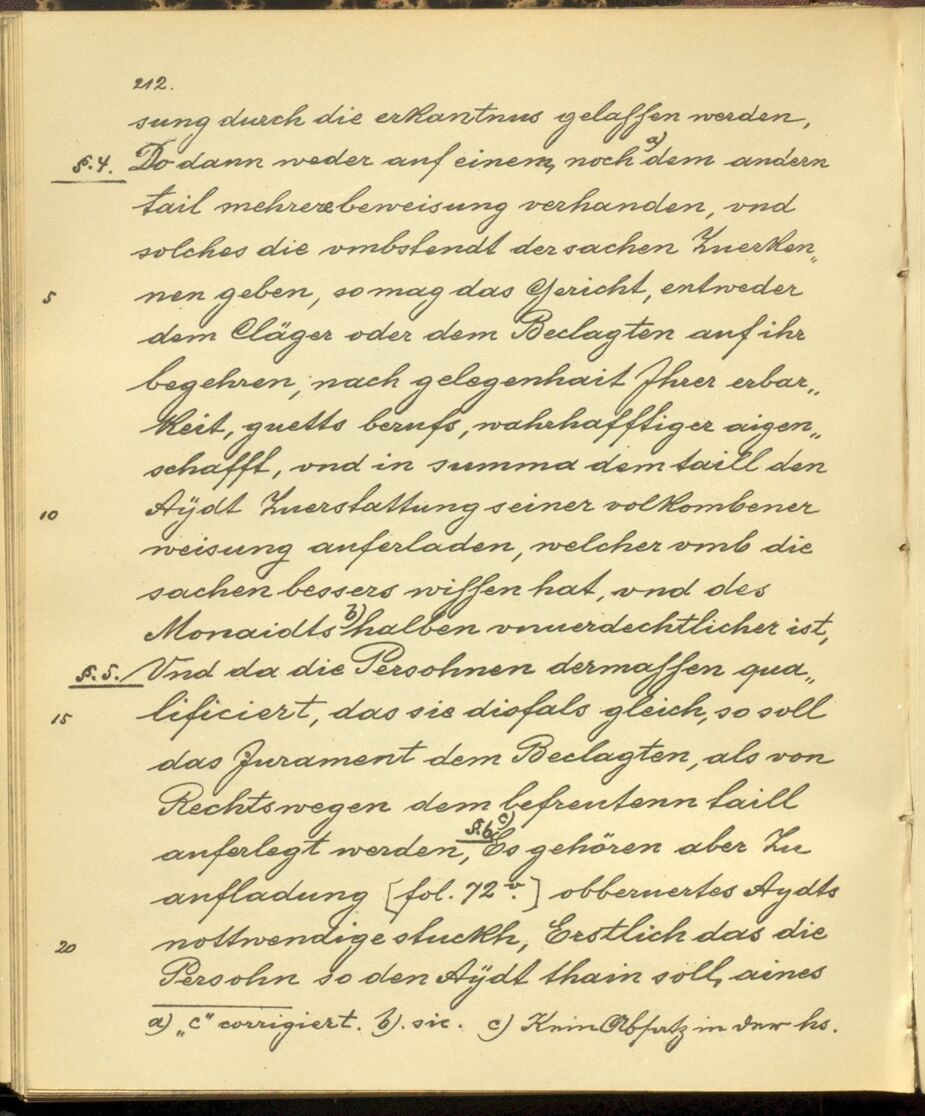 212.
sung durch die erkantnus gelassen werden,
§. 4. Do dann weder auf einem, noch a) dem andern
tail mehrere beweisung verhanden, vnd
solches die vmbstendt der sachen Zuerken„
5 nen geben, so mag das Gericht, entweder
dem Cläger oder dem Beclagten auf ihr
begehren, nach gelegenhait Ihrer erbar„
keit, guetts berufs, wahrhafftiger aigen„
schafft, vnd in summa dem taill den
10 Aÿdt Zuerstattung seiner volkombener
weisung auferladen, welcher vmb die
sachen bessers wissen hat, vnd des
Monaidts b) halben vnuerdechtlicher ist,
§. 5. Vnd da die Persohnen dermassen qua„
15 lificiert, das sie disfals gleich, so soll
das Jurament dem Beclagten, als von
Rechtswegen dem befreutenn taill
auferlegt werden, §. 6. c) Es gehören aber Zu
aufladung [fol. 72 v.] obberuertes Aydts
20 nottwendige stuckh, Erstlich das die
Persohn so den Aÿdt thain soll, aines
a) „c" corrigiert. b). sic. c) Kein Absatz in der hs.